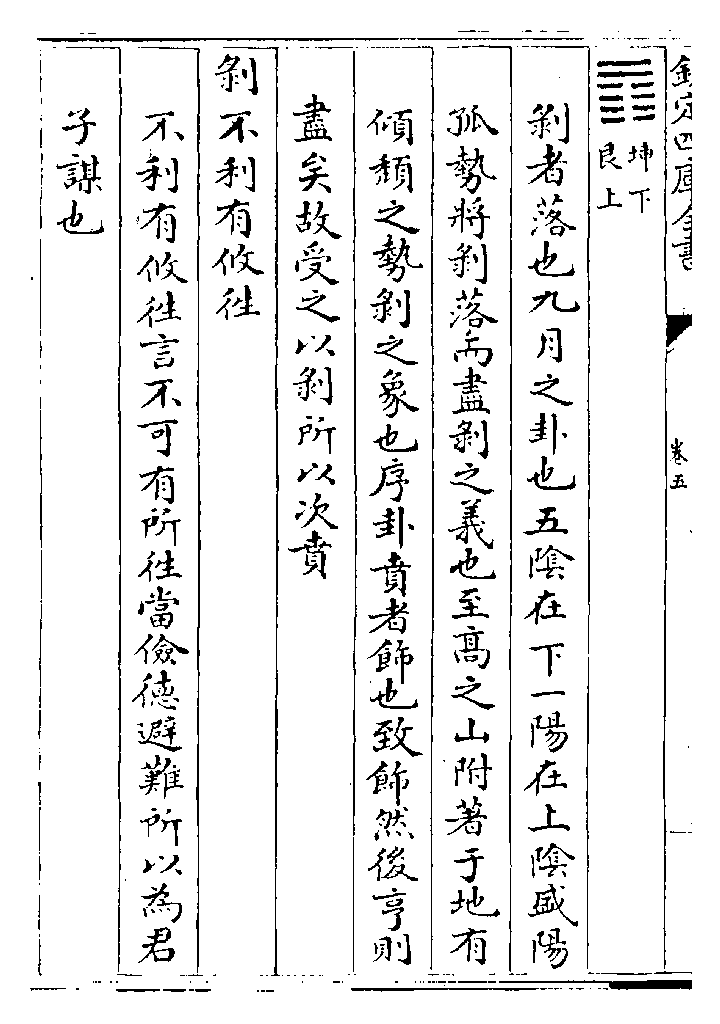 欽定四庫全書
卷五
䷖坤下
艮上
剝者落也九月之卦也五陰在下一陽在上陰盛陽
孤勢將剝落而盡剝之義也至髙之山附著于地有
傾頽之勢剝之象也序卦賁者飾也致飾然後亨則
盡矣故受之以剝所以次賁
剝不利有攸徃
不利有攸徃言不可有所徃當儉德避難所以為君
子謀也